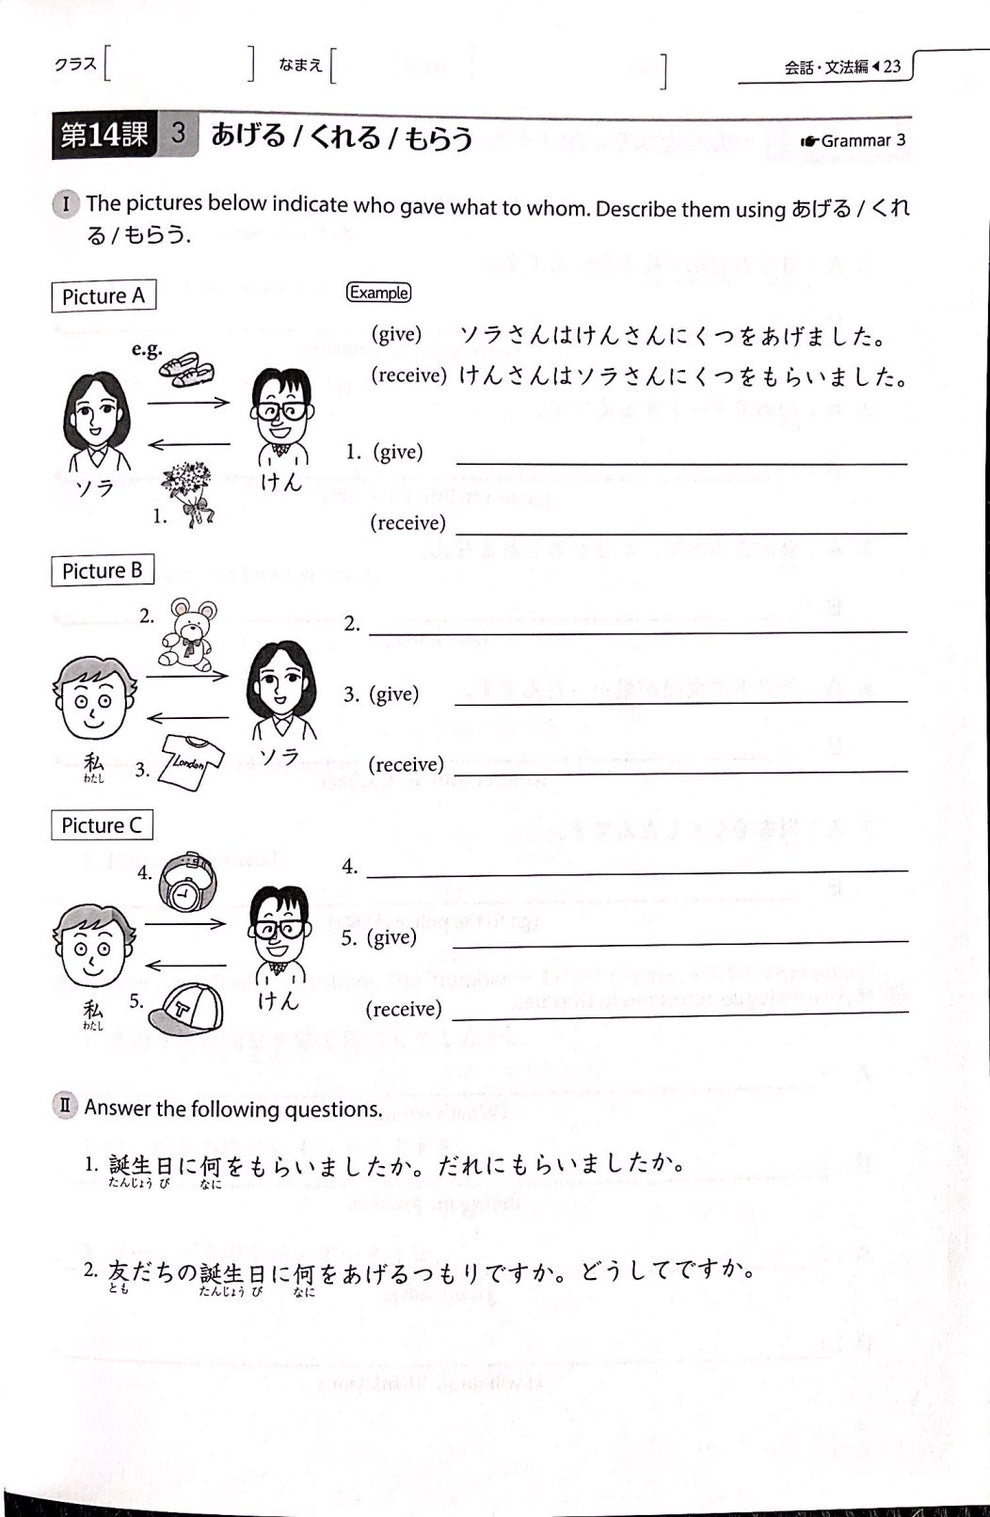 クラス[ ] なまえ[ ] 会話・文法編◀23
第14課 3 あげる / くれる / もらう ☛Grammar 3
Ⅰ The pictures below indicate who gave what to whom. Describe them using あげる / くれ
る / もらう.
Picture A
Example
(give) ソラさんはけんさんにくつをあげました。
(receive) けんさんはソラさんにくつをもらいました。
e.g.
ソラ
けん
1.
1. (give)
(receive)
Picture B
2.
私
わたし
ソラ
3.
London
2.
3. (give)
(receive)
Picture C
4.
私
わたし
けん
5.
T
4.
5. (give)
(receive)
Ⅱ Answer the following questions.
1. 誕生日に何をもらいましたか。だれにもらいましたか。
たんじょう び なに
2. 友だちの誕生日に何をあげるつもりですか。どうしてですか。
とも たんじょう び なに